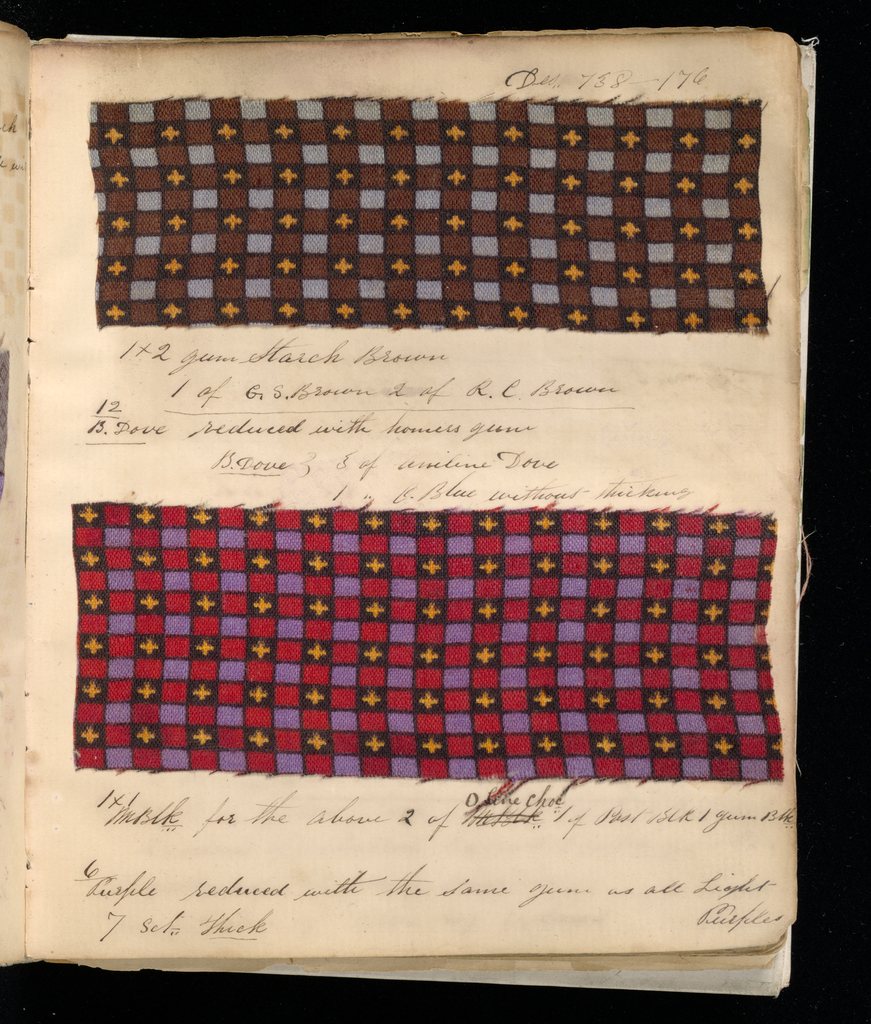 Des. 738-176
1×2 gum Starch Brown
1 of G.S. Brown 2 of R.C. Brown
12
B. Dove reduced with homess gum
B. Dove 3 of aniline Dove
1 " Blue without thicking
1×1 O line Choc
MBlk for the above 2 of 1 of Post Blk 1 gum Blk
6
Purple reduced with the same gum as all Light
Purples
7 Set. Thick